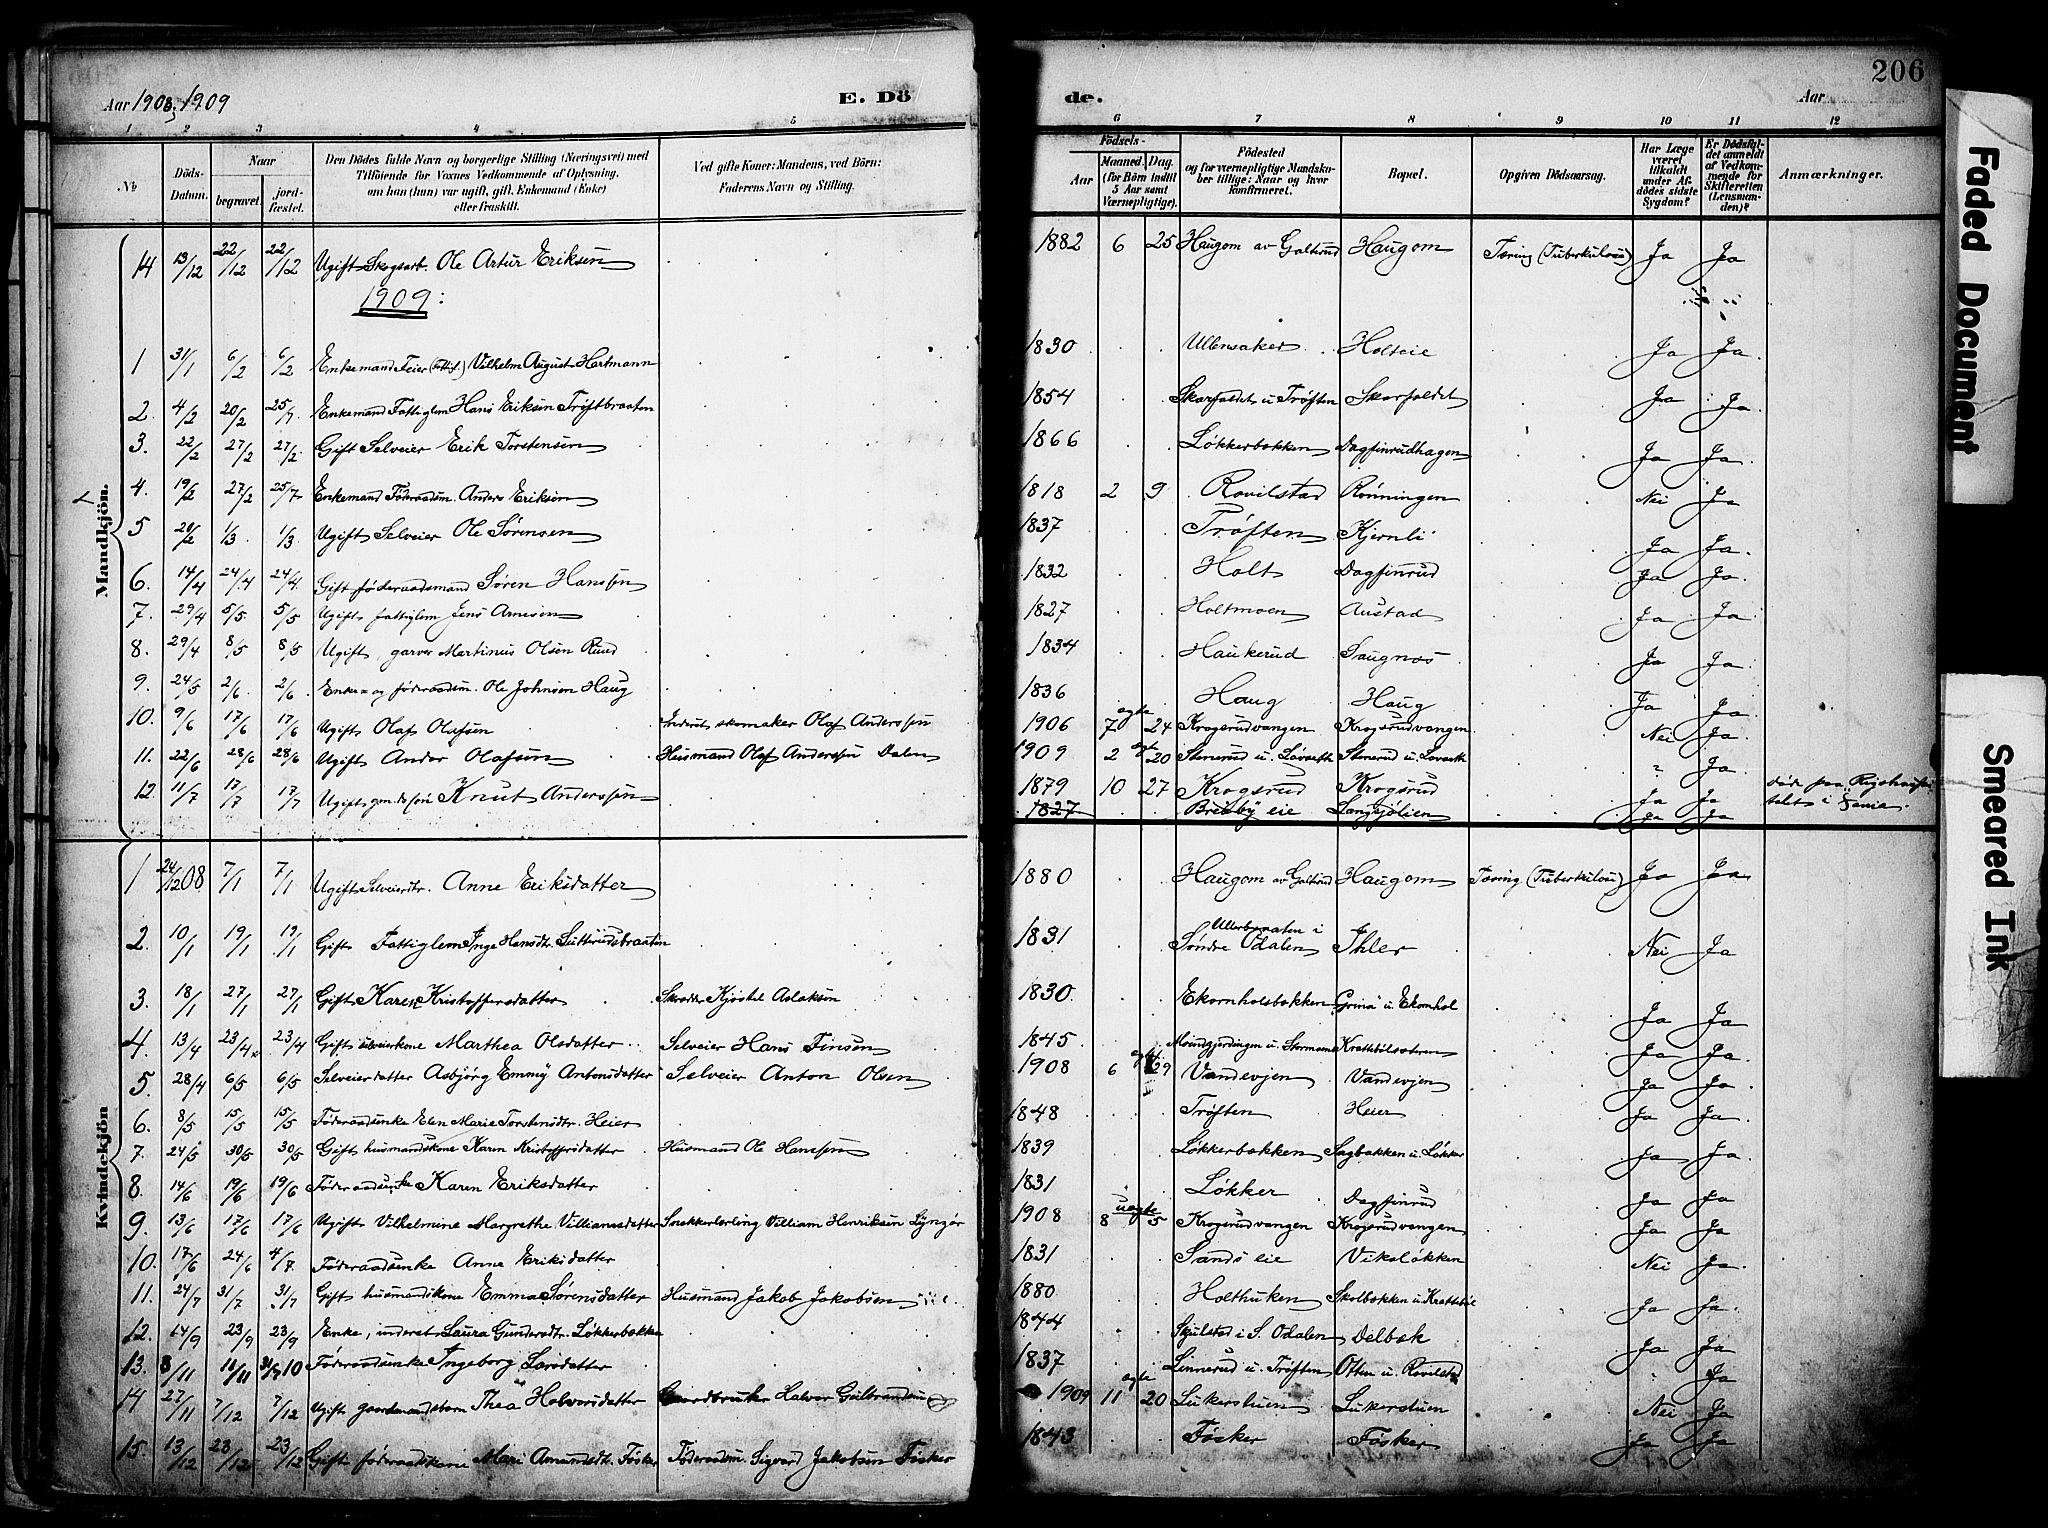 206
Aar 1908, 1909
E. Dö
de.
Aar
1 2 3 4 5 6 7 8 9 10 11 12
No
Döds-Datum.
Naar
begravet.
jord-fæstet.
Den Dödes fulde Navn og borgerlige Stilling (Næringsvei) med
Tilföiende for Voxnes Vedkommende af Oplysning,
om han (hun) var ugift, gift, Enkemand (Enke)
eller fraskilt.
Ved gifte Koner: Mandens, ved Börn:
Faderens Navn og Stilling.
Födsels-
Aar
Maaned. (for Börn indtil 5 Aar samt Værnepligtige).
Dag.
Födested
og for værnepligtige Mandska-
ber tillige: Naar og hvor
konfirmeret.
Bopæl.
Opgiven Dödsaarsag.
Har Læge været tilkaldt under Af-dödes sidste Sygdom?
Er Dödsfal-det anmeldt af Vedkom-mende for Skifteretten (Lensman-den)?
Anmærkninger.
Mandkjön.
14 13/12 22/12 22/12 Ugift Skogsarb. Ole Artur Eriksen 1882 6 25 Haugom av Galterud Haugom Tæring (Tuberkulose) Ja Ja
1909:
1 31/1 6/2 6/2 Enkemand Feier Vilhelm August Hartmann 1830 Ullensaker Holteie Ja Ja
2. 4/2 20/2 25/7 Enkemand Fattiglem Hans Eriksen Trøftbraaten 1854 Skarfaldet u Trøften Skarfaldet Ja Ja
3. 22/2 27/2 27/2 Gift Selveier Erik Torstensen 1866 Løkkerbakken Dagfinrudhagen Ja Ja
4. 19/2 27/2 25/7 Enkemand Føderaadsm. Anders Eriksen 1818 2 9 Rovilstad Rønningen Nei Ja
5 20/2 1/3 1/3 Ugift Selveier Ole Sørensen 1837 Trøften Kjernli Ja Ja
6. 14/4 24/4 24/4 Gift føderaadsmand Søren Hanssen 1832 Holt Dagfinrud Ja Ja
7. 29/4 5/5 5/5 Ugift fattiglem Jens Arnesen 1827 Holtmoen Austad Ja Ja
8. 29/4 8/5 8/5 Ugift, garver Martinus Olsen Ruud 1834 Haukerud Saugnæs Ja Ja
9. 24/5 2/6 2/6 Enke- og føderaadsm. Ole Johnsen Haug 1836 Haug Haug Ja Ja
10. 9/6 17/6 17/6 Ugift Olaf Olafsen Inderst skomaker Olaf Anderssen 1906 7 ægte 24 Krogsrudvangen Krogsrudvangen Nei Ja
11. 22/6 28/6 28/6 Ugift Andor Olafsen Husmand Olaf Anderssen Dalen 1909 2 20 Stenerud u. Løvseth Stenerud u. Løvseth Ja
12. 11/7 17/7 17/7 Ugift gm.ds søn Knut Anderssen 1879 10 27 Krogsrud Krogsrud Ja Ja død paa Rigshospi-
talet i
1827 Breiby eie Langsjølien Ja Ja
Kvindekjön
1 24/12 08 7/1 7/1 Ugift Selveierdtr. Anne Eriksdatter 1880 Haugom av Galterud Haugom Tæring (Tuberkulose) Ja Ja
2. 10/1 19/1 19/1 Gift Fattiglem Inge Hansdtr. Sætterudsbraaten 1831 Ullerbraaten i Søndre Odalen Ihler Nei Ja
3. 18/1 27/1 27/1 Gift Karen Kristoffersdatter Skrædder Kjøstel Aslaksen 1830. Ekornholsbakken Grina u Ekornhol Ja Ja
4. 13/4 23/4 23/4 Gift selveierkone Marthea Olsdatter Selveier Hans Finsen 1845 Krattebølsæteren Ja Ja
5 28/4 6/5 6/5 Selveierdatter Asbjørg Emmy Antonsdatter Selveier Anton Olsen 1908 6 29 Vandevjen Vandevjen Ja Ja
6. 8/5 15/5 15/5 Føderaadsenke Elen Marie Torstensdtr. Heier 1848 Trøften Heier Ja Ja
7. 24/5 30/5 30/5 Gift husmandskone Karen Kristoffersdatter Husmand Ole Hanssen 1839 Løkkerbakken Sagbakken u. Løkker Ja Ja
8. 14/6 19/6 19/6 Føderaadsenke Karen Eriksdatter 1831 Løkker Dagfinrud Ja Ja
9. 13/6 17/6 17/6 Ugift Vilhelmine Margrethe Villiamsdatter Snekkerlærling Villiam Henriksen Lyngør 1908 8 uægte 5 Krogsrudvangen Krogsrudvangen Ja Ja
10. 17/6 24/6 4/7 Føderaadsenke Anne Eriksdatter 1831 Sands eie Vikaløkken Nei Ja
11. 24/7 31/7 31/7 Gift husmandskone Emma Sørensdatter Husmand Jakob Jakobsen 1880 Holthuken Skolbakken u Krattebøl Ja Ja
12. 14/9 23/9 23/9 Enke, inderst Laura Gundersdtr. Løkkerbakke 1844 Skjulstad i S. Odalen Delbæk Ja Ja
13. 3/11 11/11 31/7 10 Føderaadsenke Ingeborg Larsdatter 1837 Linnerud u. Trøften Otten u. Rovilstad Ja
14 27/11 7/12 7/12 Ugift gaardmandsbarn Thea Halvorsdatter Gaardbruker Halvor Gulbrandsen 1909 11 ægte 20 Lukerstuen Lukerstuen Nei Ja
15. 13/12 23/12 23/12 Gift føderaadskone Mari Amundsdt. Føsker Føderaadsm. Sigvard Jakobsen Føsker 1843 Føsker Føsker Ja Ja
Faded Document
Smeared Ink